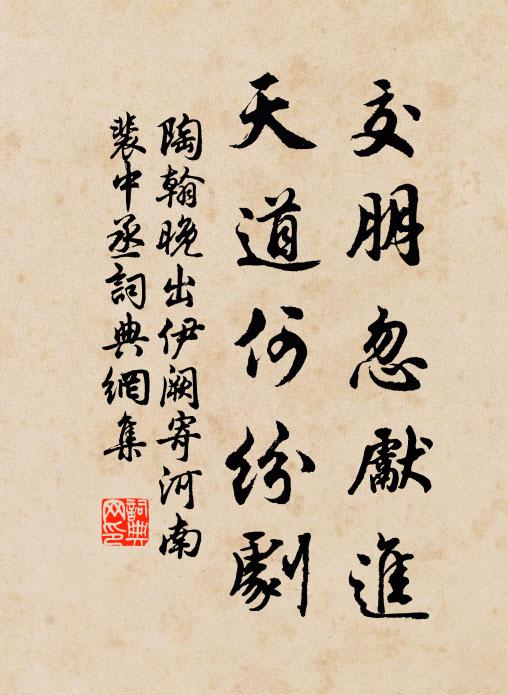 交朋忽獻進
天道何紛劇
陶翰晚出伊阙寄河南
裴中丞詞典網集
詞典
网印